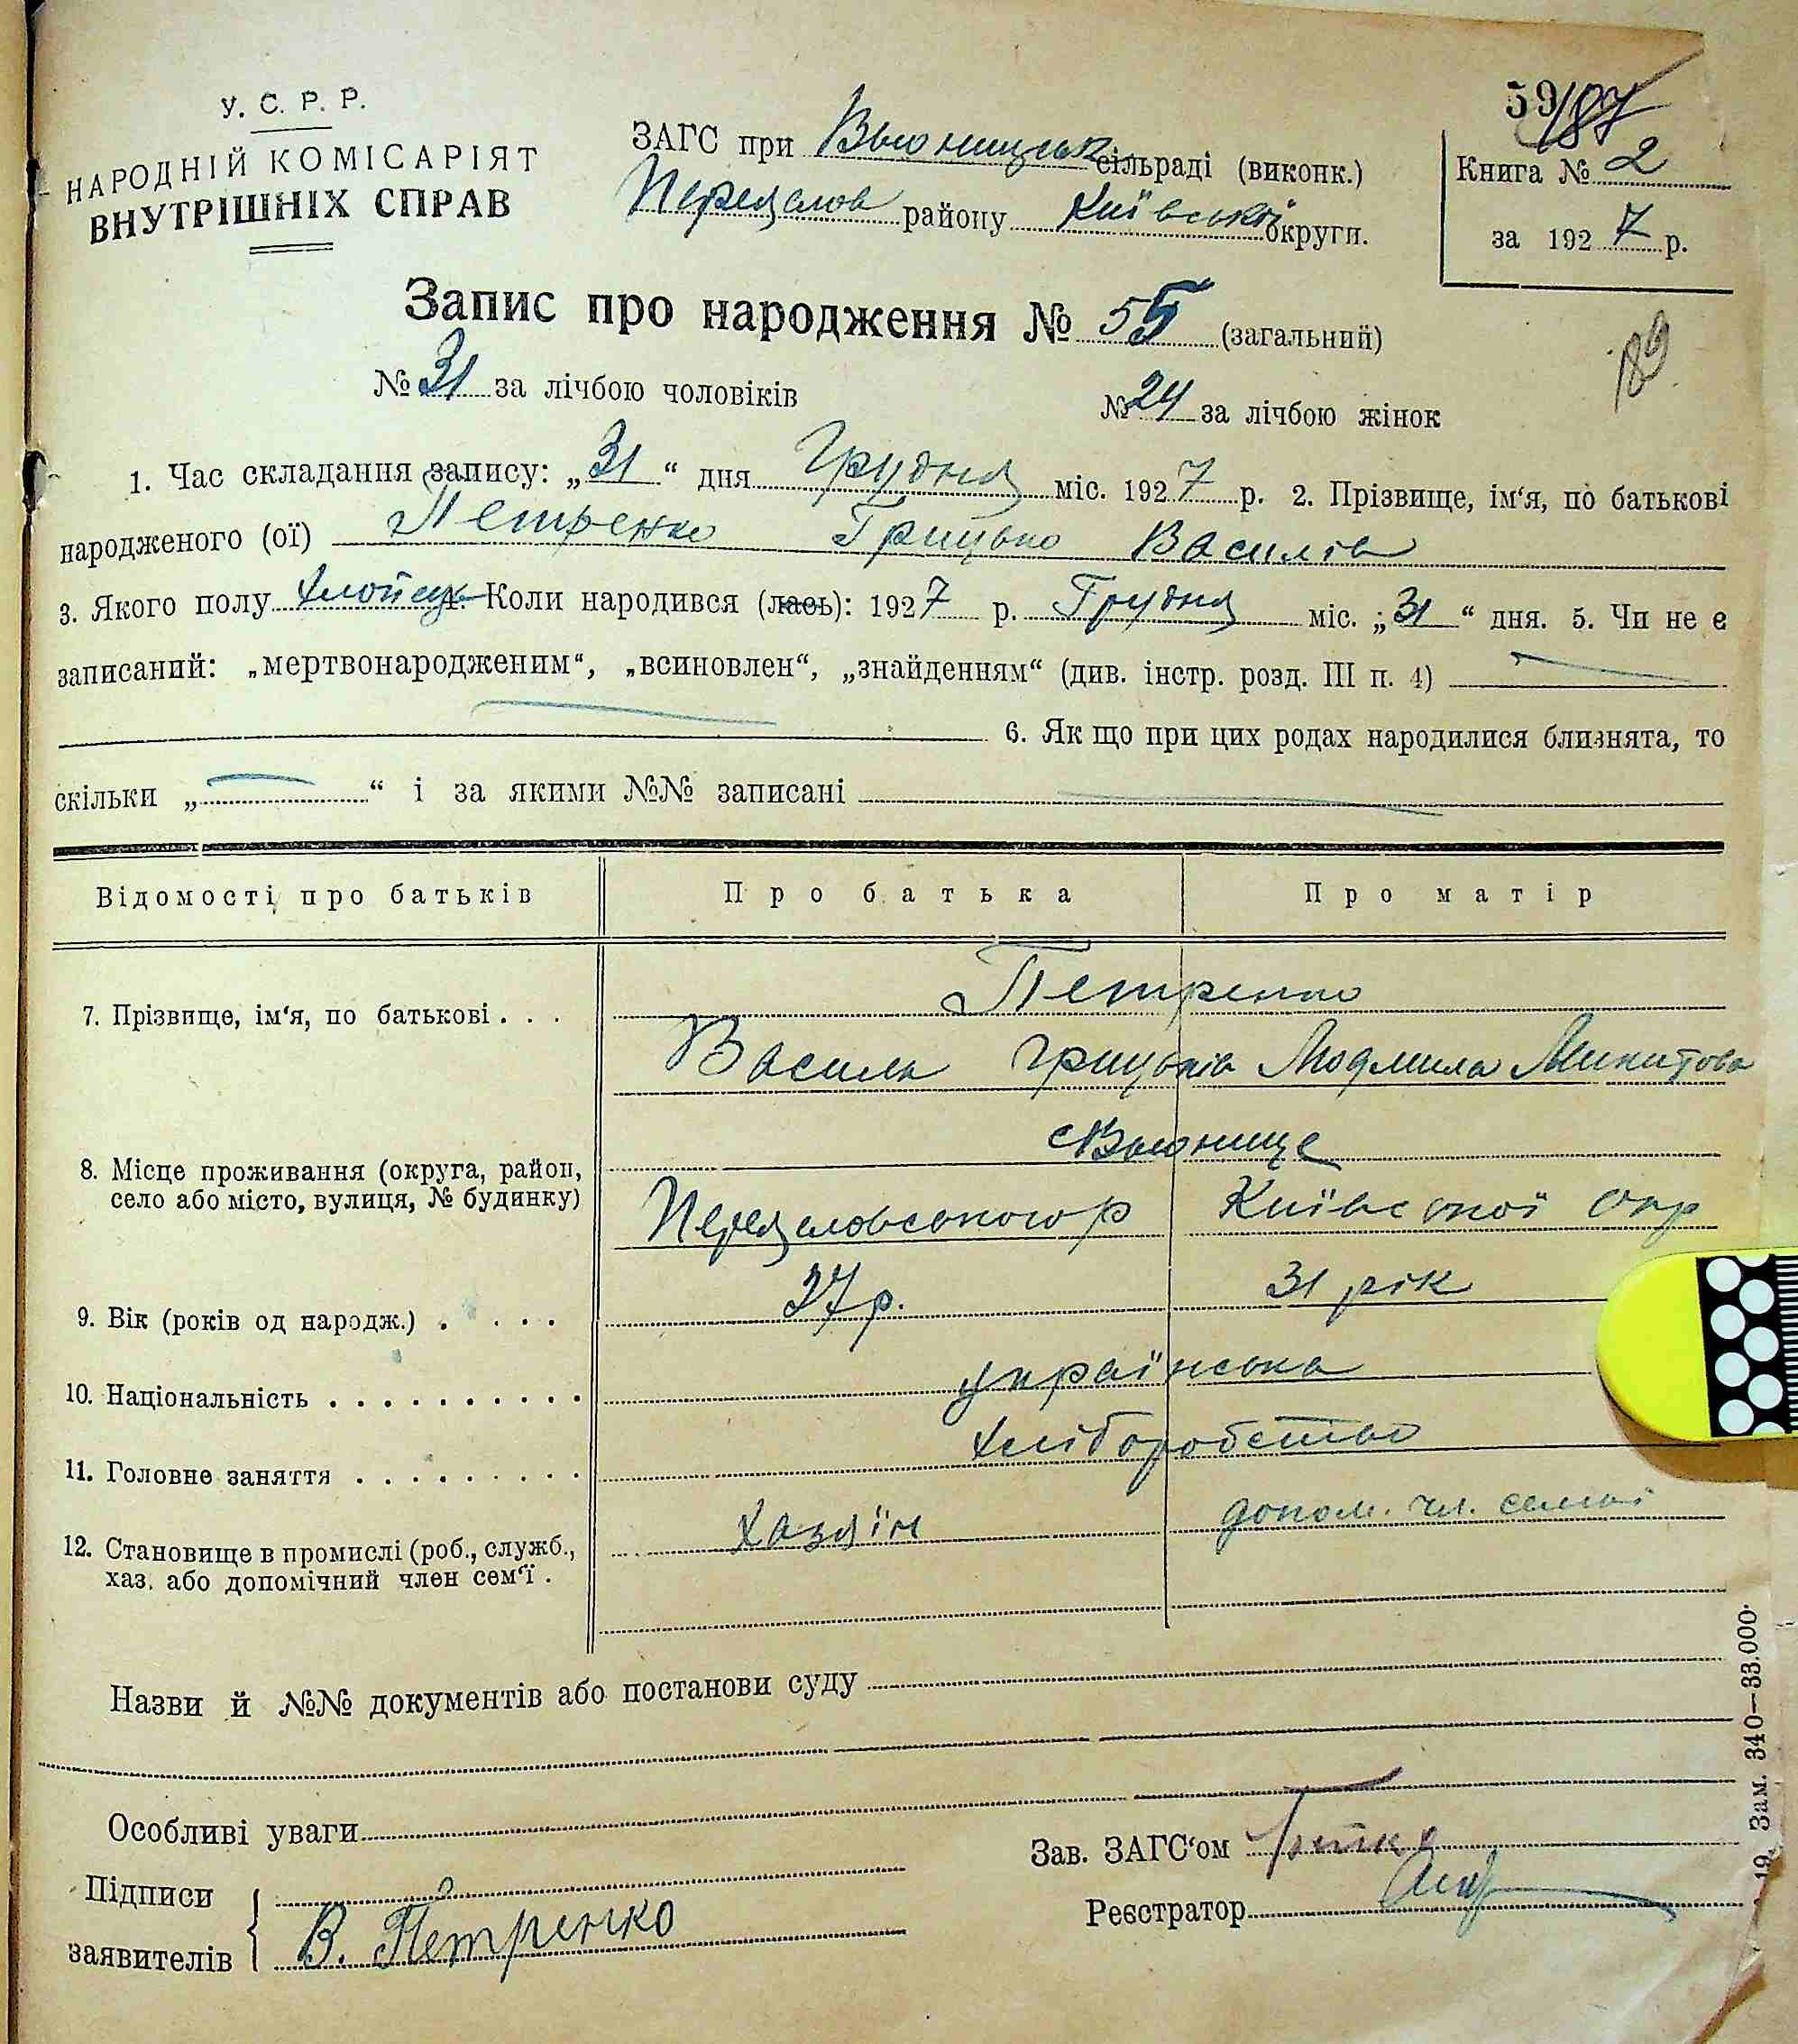 У. С. Р. Р.
НАРОДНІЙ КОМІСАРІЯТ
ВНУТРІШНІХ СПРАВ
ЗАГС при Вьюницьк сільраді (виконк.)
Переяслов району Київської округи.
59
187
Книга № 2
за 1927 р.
Запис про народження № 55 (загальний)
189
№ 31 за лічбою чоловіків № 24 за лічбою жінок
1. Час складання запису: „31“ дня Грудня міс. 1927 р. 2. Прізвище, ім‘я, по батькові
народженого (ої) Петренко Грицько Василів
3. Якого полу хлопець 4. Коли народився (лась): 1927 р. Грудня міс. „31“ дня. 5. Чи не є
записаний: „мертвонародженим“, „всиновлен“, „знайденням“ (див. інстр. розд. III п. 4)
6. Як що при цих родах народилися близнята, то
скільки „ “ і за якими №№ записані
Відомості про батьків Про батька Про матір
7. Прізвище, ім‘я, по батькові . . . Петренко
Василь Грицьків Людмила Микитова
8. Місце проживання (округа, район, с Вьюнище
село або місто, вулиця, № будинку) Переясловського р Київської окр
9. Вік (років од народж.) . . . . . 27 р. 31 рік
10. Національність . . . . . . . . . . українська
11. Головне заняття . . . . . . . . . хліборобство
12. Становище в промислі (роб., служб., хазяїн допом. чл. семьї
хаз. або допомічний член сем‘ї .
Назви й №№ документів або постанови суду
Особливі уваги
Зав. ЗАГС‘ом
Підписи
Реєстратор
заявителів В. Петренко
19. Зам. 340—33.000.